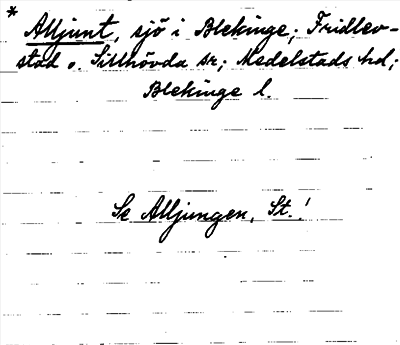 * Alljunt, sjö i Blekinge; Fridlev-
stad o. Sillhövda sr; Medelstads hd;
Blekinge l.
Se Alljungen, St.!